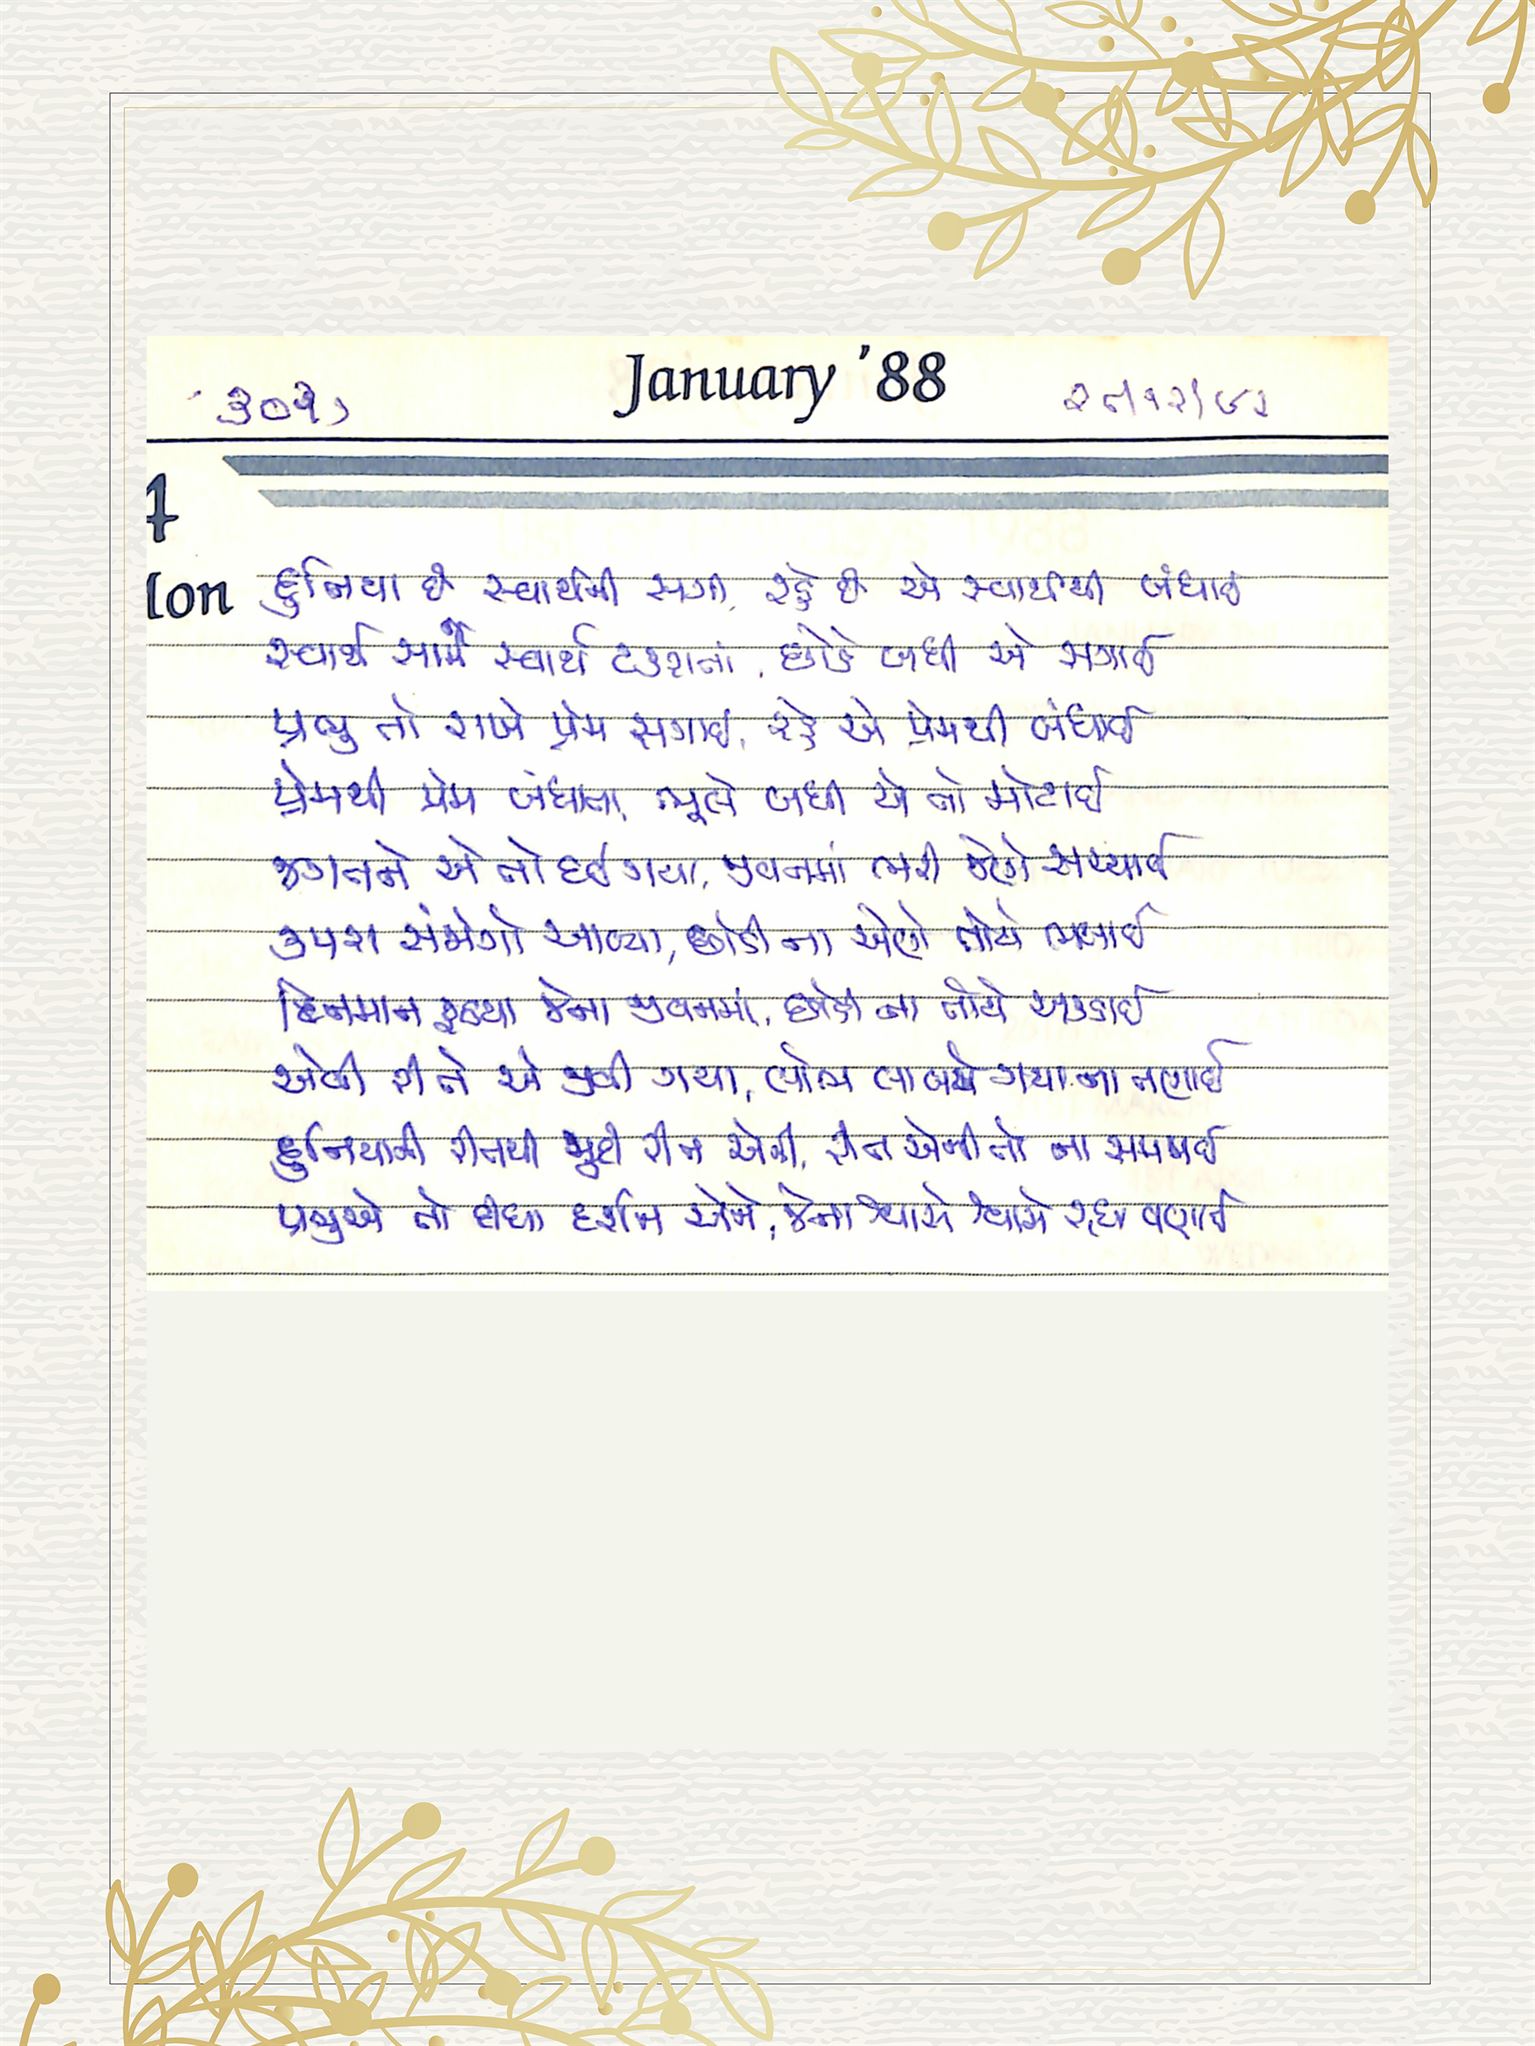 January '88
૩૦૧)
4
Mon
દુનિયા છે સ્વાર્થની સગી, રહે છે એ સ્વાર્થથી બંધાઈ
સ્વાર્થ સામે સ્વાર્થ ટકરાતા, છોડે બધી એ સગાઈ
પ્રભુ તો રાખે પ્રેમ સગાઈ, રહે એ પ્રેમથી બંધાઈ
પ્રેમથી પ્રેમ બંધાતા, ભૂલે બધી એ તો મોટાઈ
જગતને એ તો દઈ ગયા, જીવનમાં ભરી જેણે સચ્ચાઈ
કપરા સંજોગો આવ્યા, છોડી ના એણે તોયે ભલાઈ
દિનમાન રૂઠયા જેના જીવનમાં, છોડી ના તોયે અકડાઈ
એવી રીતે એ જીવી ગયા, લોભ લાલચે ગયા ના તણાઈ
દુનિયાની રીતથી જુદી રીત એની, રીત એની તો ના સમજાઈ
પ્રભુએ તો દીધા દર્શન એને, જેના શ્વાસે શ્વાસે વણાઈ